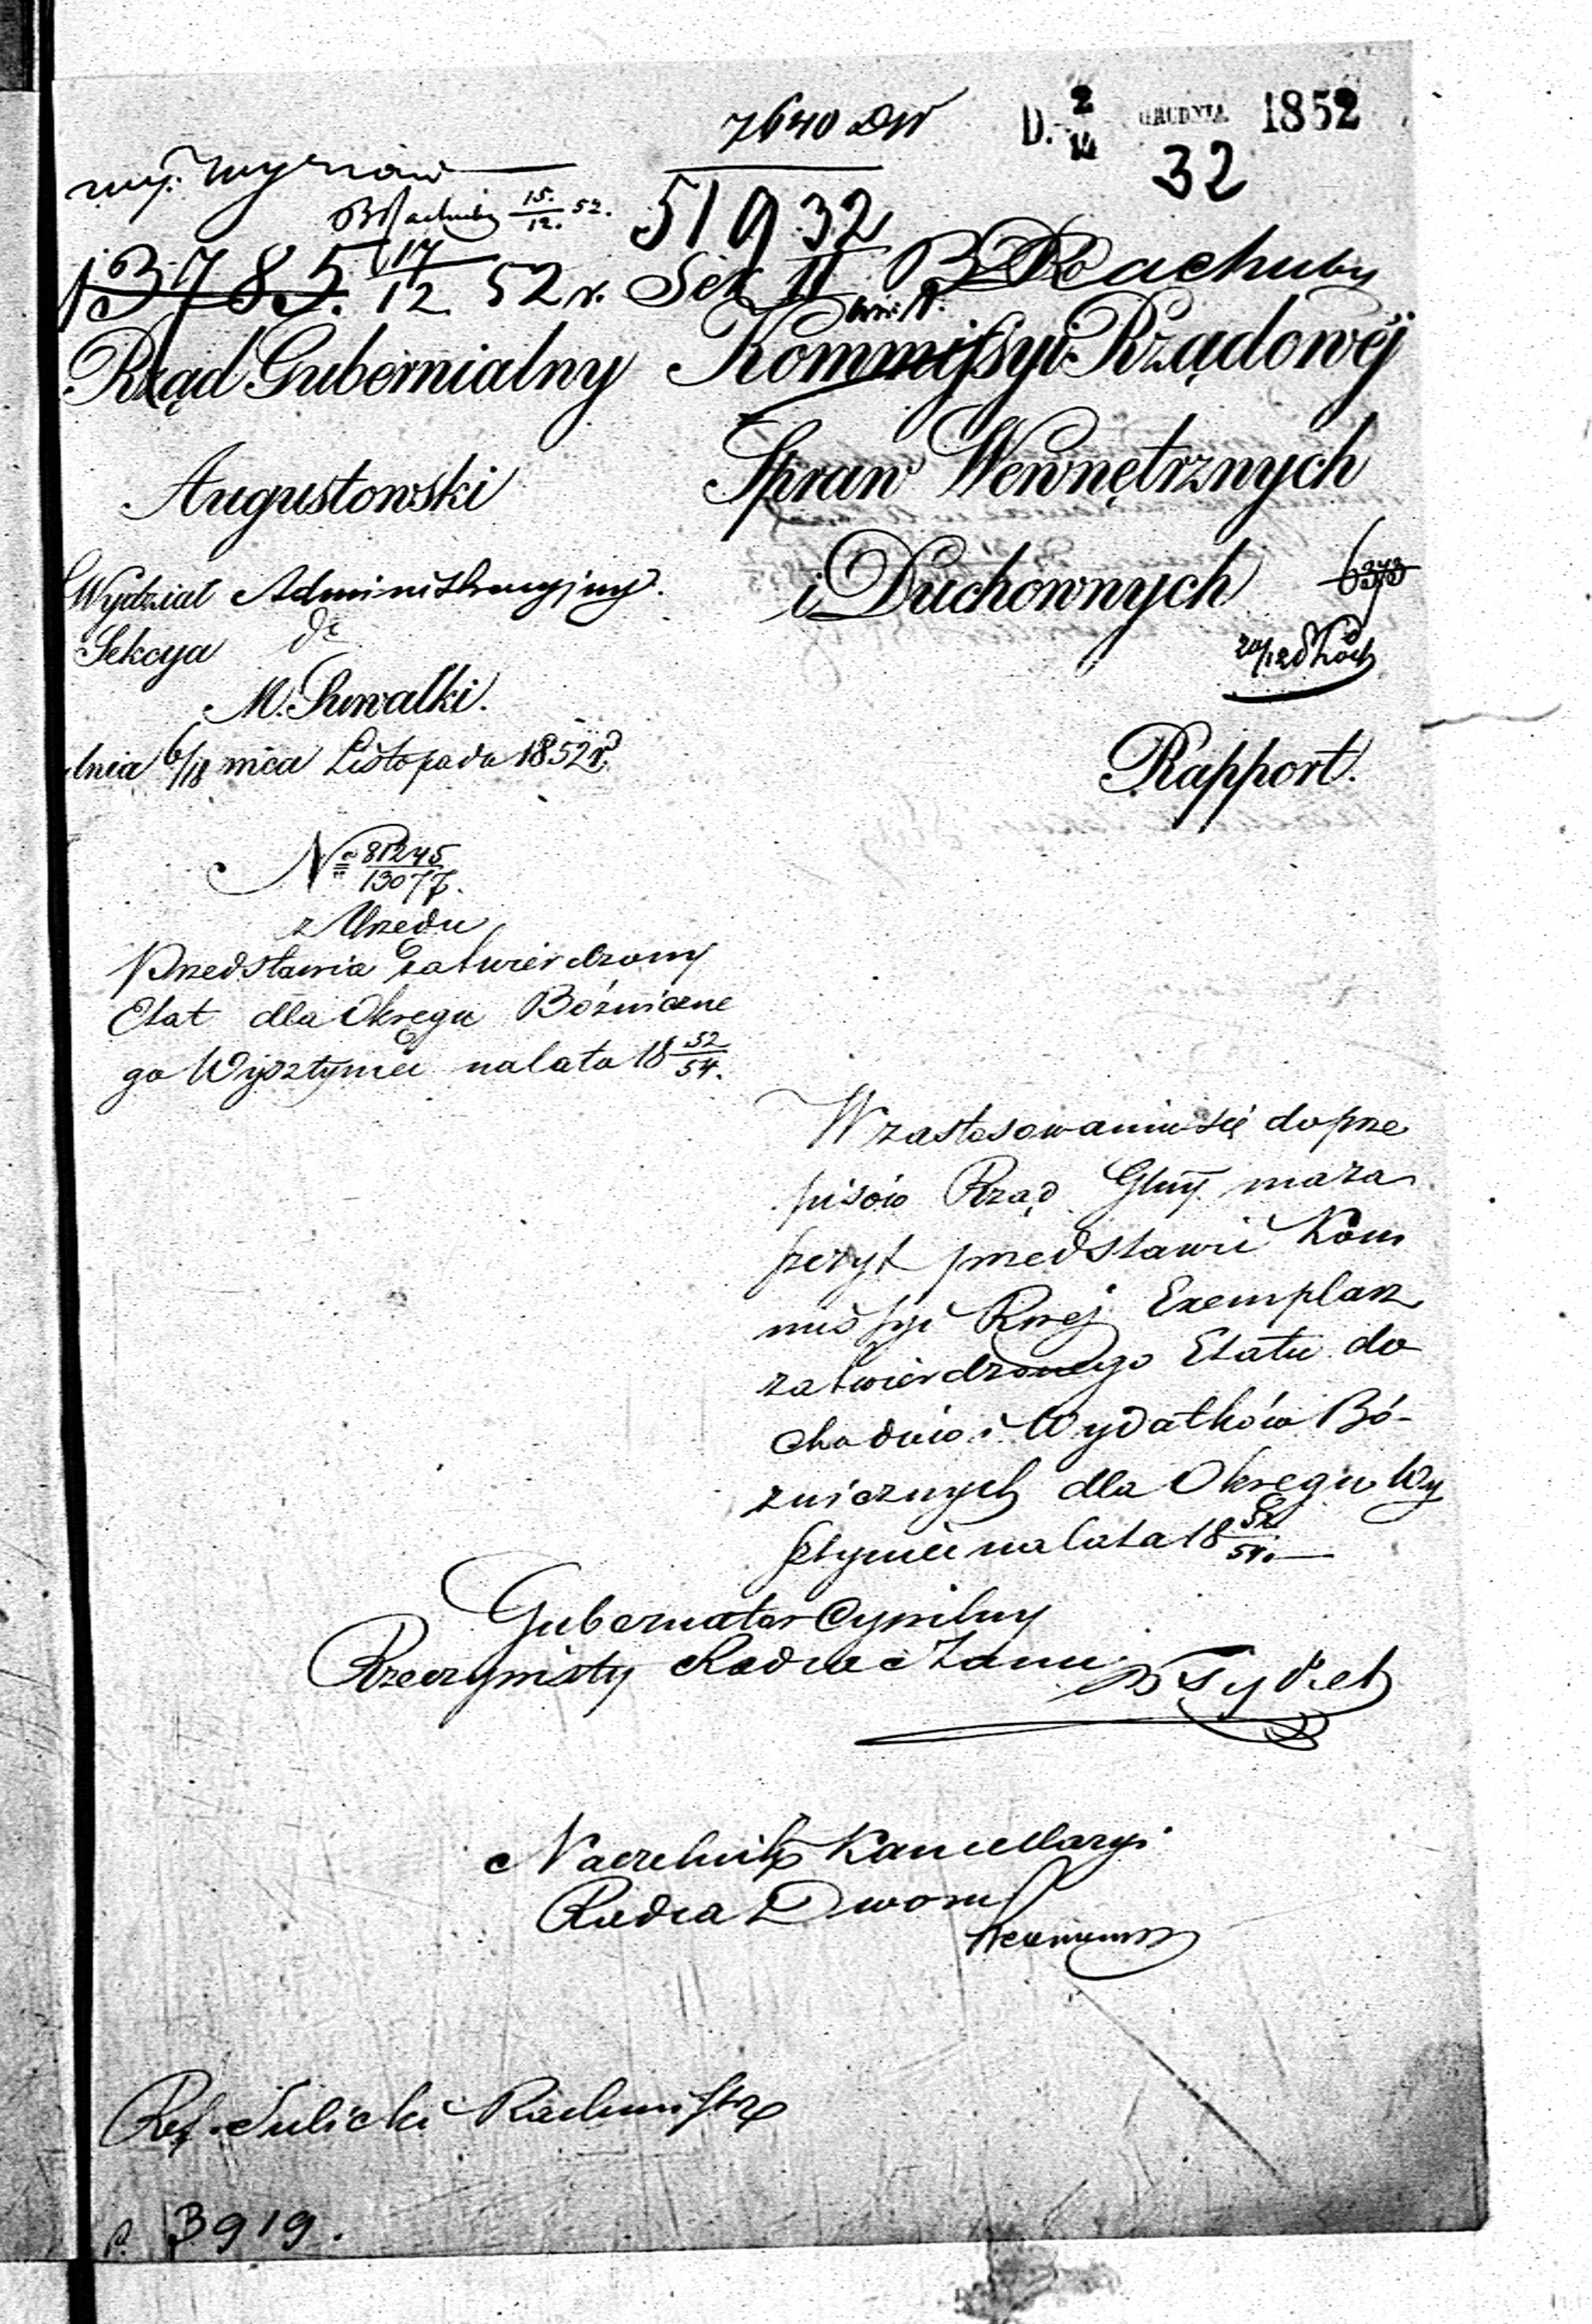 7640 DW
D. 2/14 GRUDNIA 1852
32
wy.
B Rachuby 15./12. 52.
51932
13785. 17/12. 52 r.
Sek II B Rachuby
Rząd Gubernialny
Augustowski
Wydział Administracyjny.
Sekcya dt
M. Suwałki.
dnia 6/18 mca Listopada 1852 r.
Kommissyi Rządowéj
Spraw Wewnętrznych
i Duchownych
6373
20/12
Rapport.
No 81245/13077.
z Urzędu
Przedstawia zatwierdzony
Etat dla Okręgu Bóżniczne
go Wysztyniec na lata 18 52/54.
W zastosowaniu się do prze
pisów Rząd Glny ma za
szczyt przedstawić Kom
missyi Rwej Exemplarz
zatwierdzonego Etatu do
chodów i Wydatków Bó-
żnicznych dla Okręgu Wy
sztyniec na lata 18 52/54.
Gubernator Cywilny
Rzeczywisty Radca Stanu Tykel
Naczelnik Kancellaryi
Radca Dworu
Ref. Sulicki Rachmistrz
p. 3919.